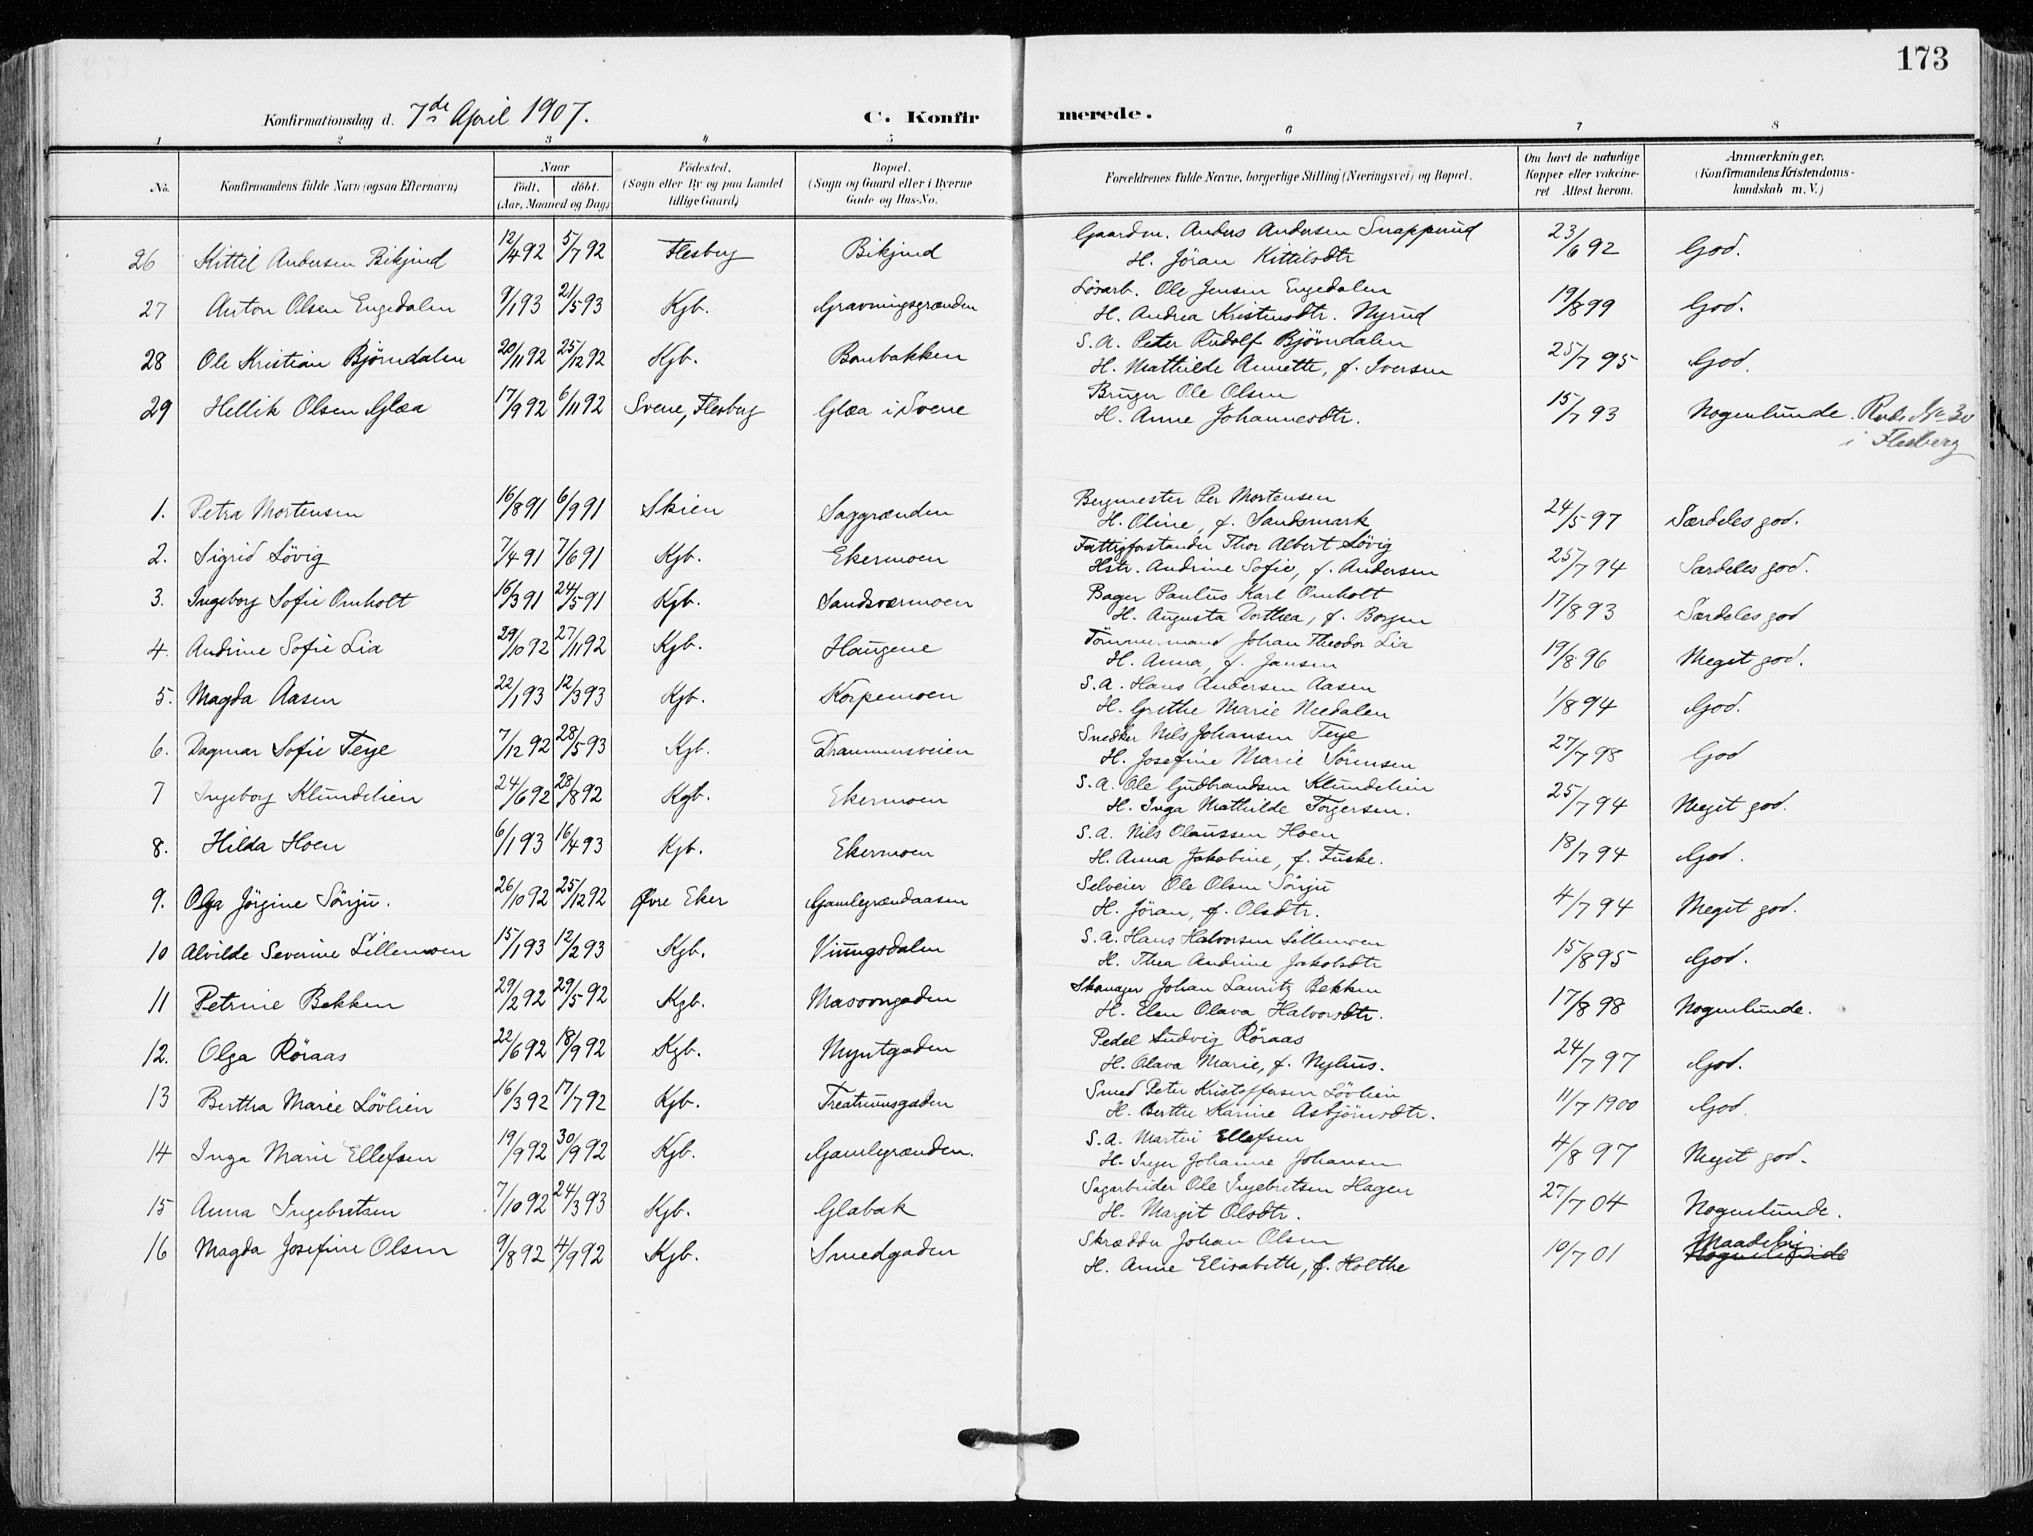 173
Konfirmationsdag d. 7de April 1907. C. Konfirmerede.
1 2 3 4 5 6 7 8
No. Konfirmandens fulde Navn (ogsaa Efternavn) Naar født. døbt. (Aar, Maaned og Dag) Fødested. (Sogn eller By og paa Landet tillige Gaard) Bopæl. (Sogn og Gaard eller i Byerne Gade og Hus-No. Forældrenes fulde Navne, borgerlige Stilling (Næringsvei) og Bopæl. Om havt de naturlige Kopper eller vaccineret Attest herom. Anmærkninger. (Konfirmandens Kristendomskundskab m. V.)
26 Kittil Andersen Bikjud 12/4 92 5/7 92 Flesberg Bikjud Gaardm. Anders Andersen Snapperud 23/6 92 God.
H. Jöran Kittilsdtr
27 Anton Olsen Engedalen 9/1 93 21/5 93 Kgb. Gravningsgrænden Lösarb. Ole Jensen Engedalen 19/8 99 God.
H. Andrea Kristinsdtr. Nyrud
28 Ole Kristian Bjørndalen 20/11 92 25/12 92 Kgb. Bonbakken S. A. Peter Rudolf Bjørndalen 25/7 95 God.
H. Mathilde Annette, f. Iversen
29 Hellik Olsen Glæa 17/9 92 6/11 92 Svene, Flesberg Glæa i Svene Bruger Ole Olsen 15/7 93 Nogenlunde. No 30
H. Anne Johannesdtr.
i Flesberg
1. Petra Mortensen 16/8 91 6/9 91 Skien Saggrænden Bergmester Per Mortensen 24/5 97 Særdeles god.
H. Oline, f. Sandsmark
2. Sigrid Løvig 7/4 91 7/6 91 Kgb. Ekermoen Fattigforstander Thor Albert Løvig 25/7 94 Særdeles god.
Hstr. Andrine Sofie, f. Andersen
3. Ingeborg Sofie Omholt 16/3 91 24/5 91 Kgb. Sandsværmoen Bager Paulus Karl Omholt 17/8 93 Særdeles god
H. Augusta Dorthea, f. Borgen
4. Andrine Sofie Lia 29/10 92 27/11 92 Kgb. Haugene Tömmermand Johan Theodor Lia 19/8 96 Meget god.
H. Anna, f. Jansen
5. Magda Aasen 22/1 93 12/3 93 Kgb. Korpemoen S. A. Hans Andersen Aasen 1/8 94 God.
H. Grethe Marie Needalen
6. Dagmar Sofie Teye 7/12 92 28/5 93 Kgb. Drammensveien Snedker Nils Johansen Teye 27/7 98 God
H. Josefine Marie Sörensen
7 Ingeborg Klundelien 24/6 92 28/8 92 Kgb. Ekermoen S. A. Ole Gudbrandsen Klundelien 25/7 94 Meget god.
H. Inga Mathilde Torgersen.
8. Hilda Hoen 6/1 93 16/4 93 Kgb. Ekermoen S. A. Nils Olaussen Hoen 18/7 94 God.
H. Anna Jakobine, f. Fuske.
9. Olga Jörgine Sönju. 26/10 92 25/12 92 Øvre Eker Gamlegrændaasen Selveier Ole Olsen Sönju 4/7 94 Meget god.
H. Jöran, f. Olsdtr.
10 Alvilde Severine Lillemoen 15/1 93 12/2 93 Kgb. Viungsdalen S. A. Hans Halvorsen Lillemoen 15/8 95 God.
H. Thea Andrine Jakobsdtr
11 Petrine Bekken 29/2 92 29/5 92 Kgb. Masovngaden Skomager Johan Lauritz Bekken 17/8 98 Nogenlunde.
H. Elen Olava Halvorsdtr.
12. Olga Röraas 22/6 92 18/9 92 Kgb. Myntgaden Pedel Ludvig Röraas 24/7 97 God.
H. Olava Marie, f. Nyhus.
13 Bertha Marie Løvlien 16/3 92 17/7 92 Kgb. Treatriumsgaden Smed Peter Kristoffersen Løvlien 11/7 1900 God.
H. Berthe Karine Asbjörnsdtr.
14 Inga Marie Ellefsen 19/9 92 30/9 92 Kgb. Gamlegrænden. S. A. Martin Ellefsen 4/8 97 Meget god.
H. Inger Johanne Johansen
15 Anna Ingebretsen 7/10 92 24/3 93 Kgb. Glabak Sagarbeider Ole Ingebretsen Hagen 27/7 04 Nogenlunde.
H. Margit Olsdtr.
16 Magda Josefine Olsen 9/8 92 4/9 92 Kgb. Smedgaden Skrædder Johan Olsen 10/7 01 Maadelig Nogenlunde
H. Anne Elisabeth, f. Holthe